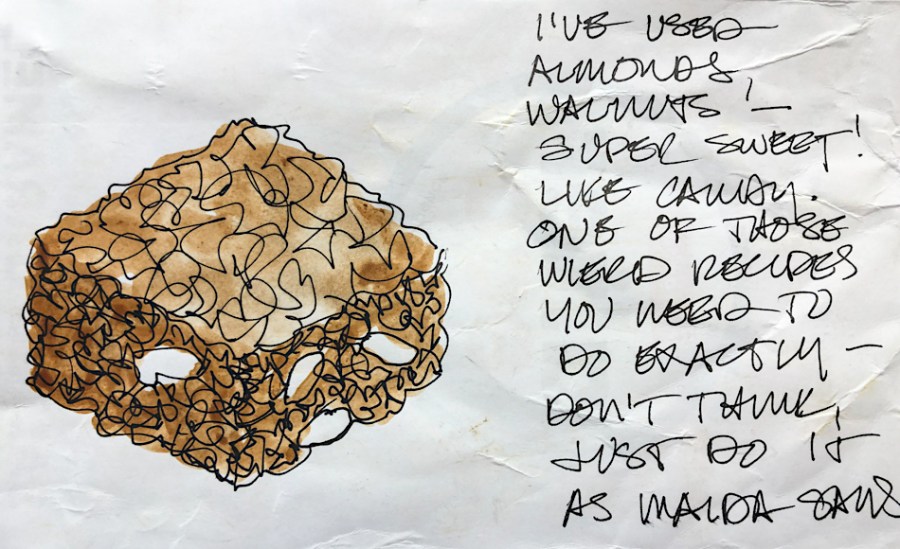 I'VE USED
ALMONDS,
WALNUTS! —
SUPER SWEET!
LIKE CANDY.
ONE OF THOSE
WIERD RECIPES
YOU NEED TO
DO EXACTLY —
DON'T THINK,
JUST DO IT
AS MAIDA SAYS